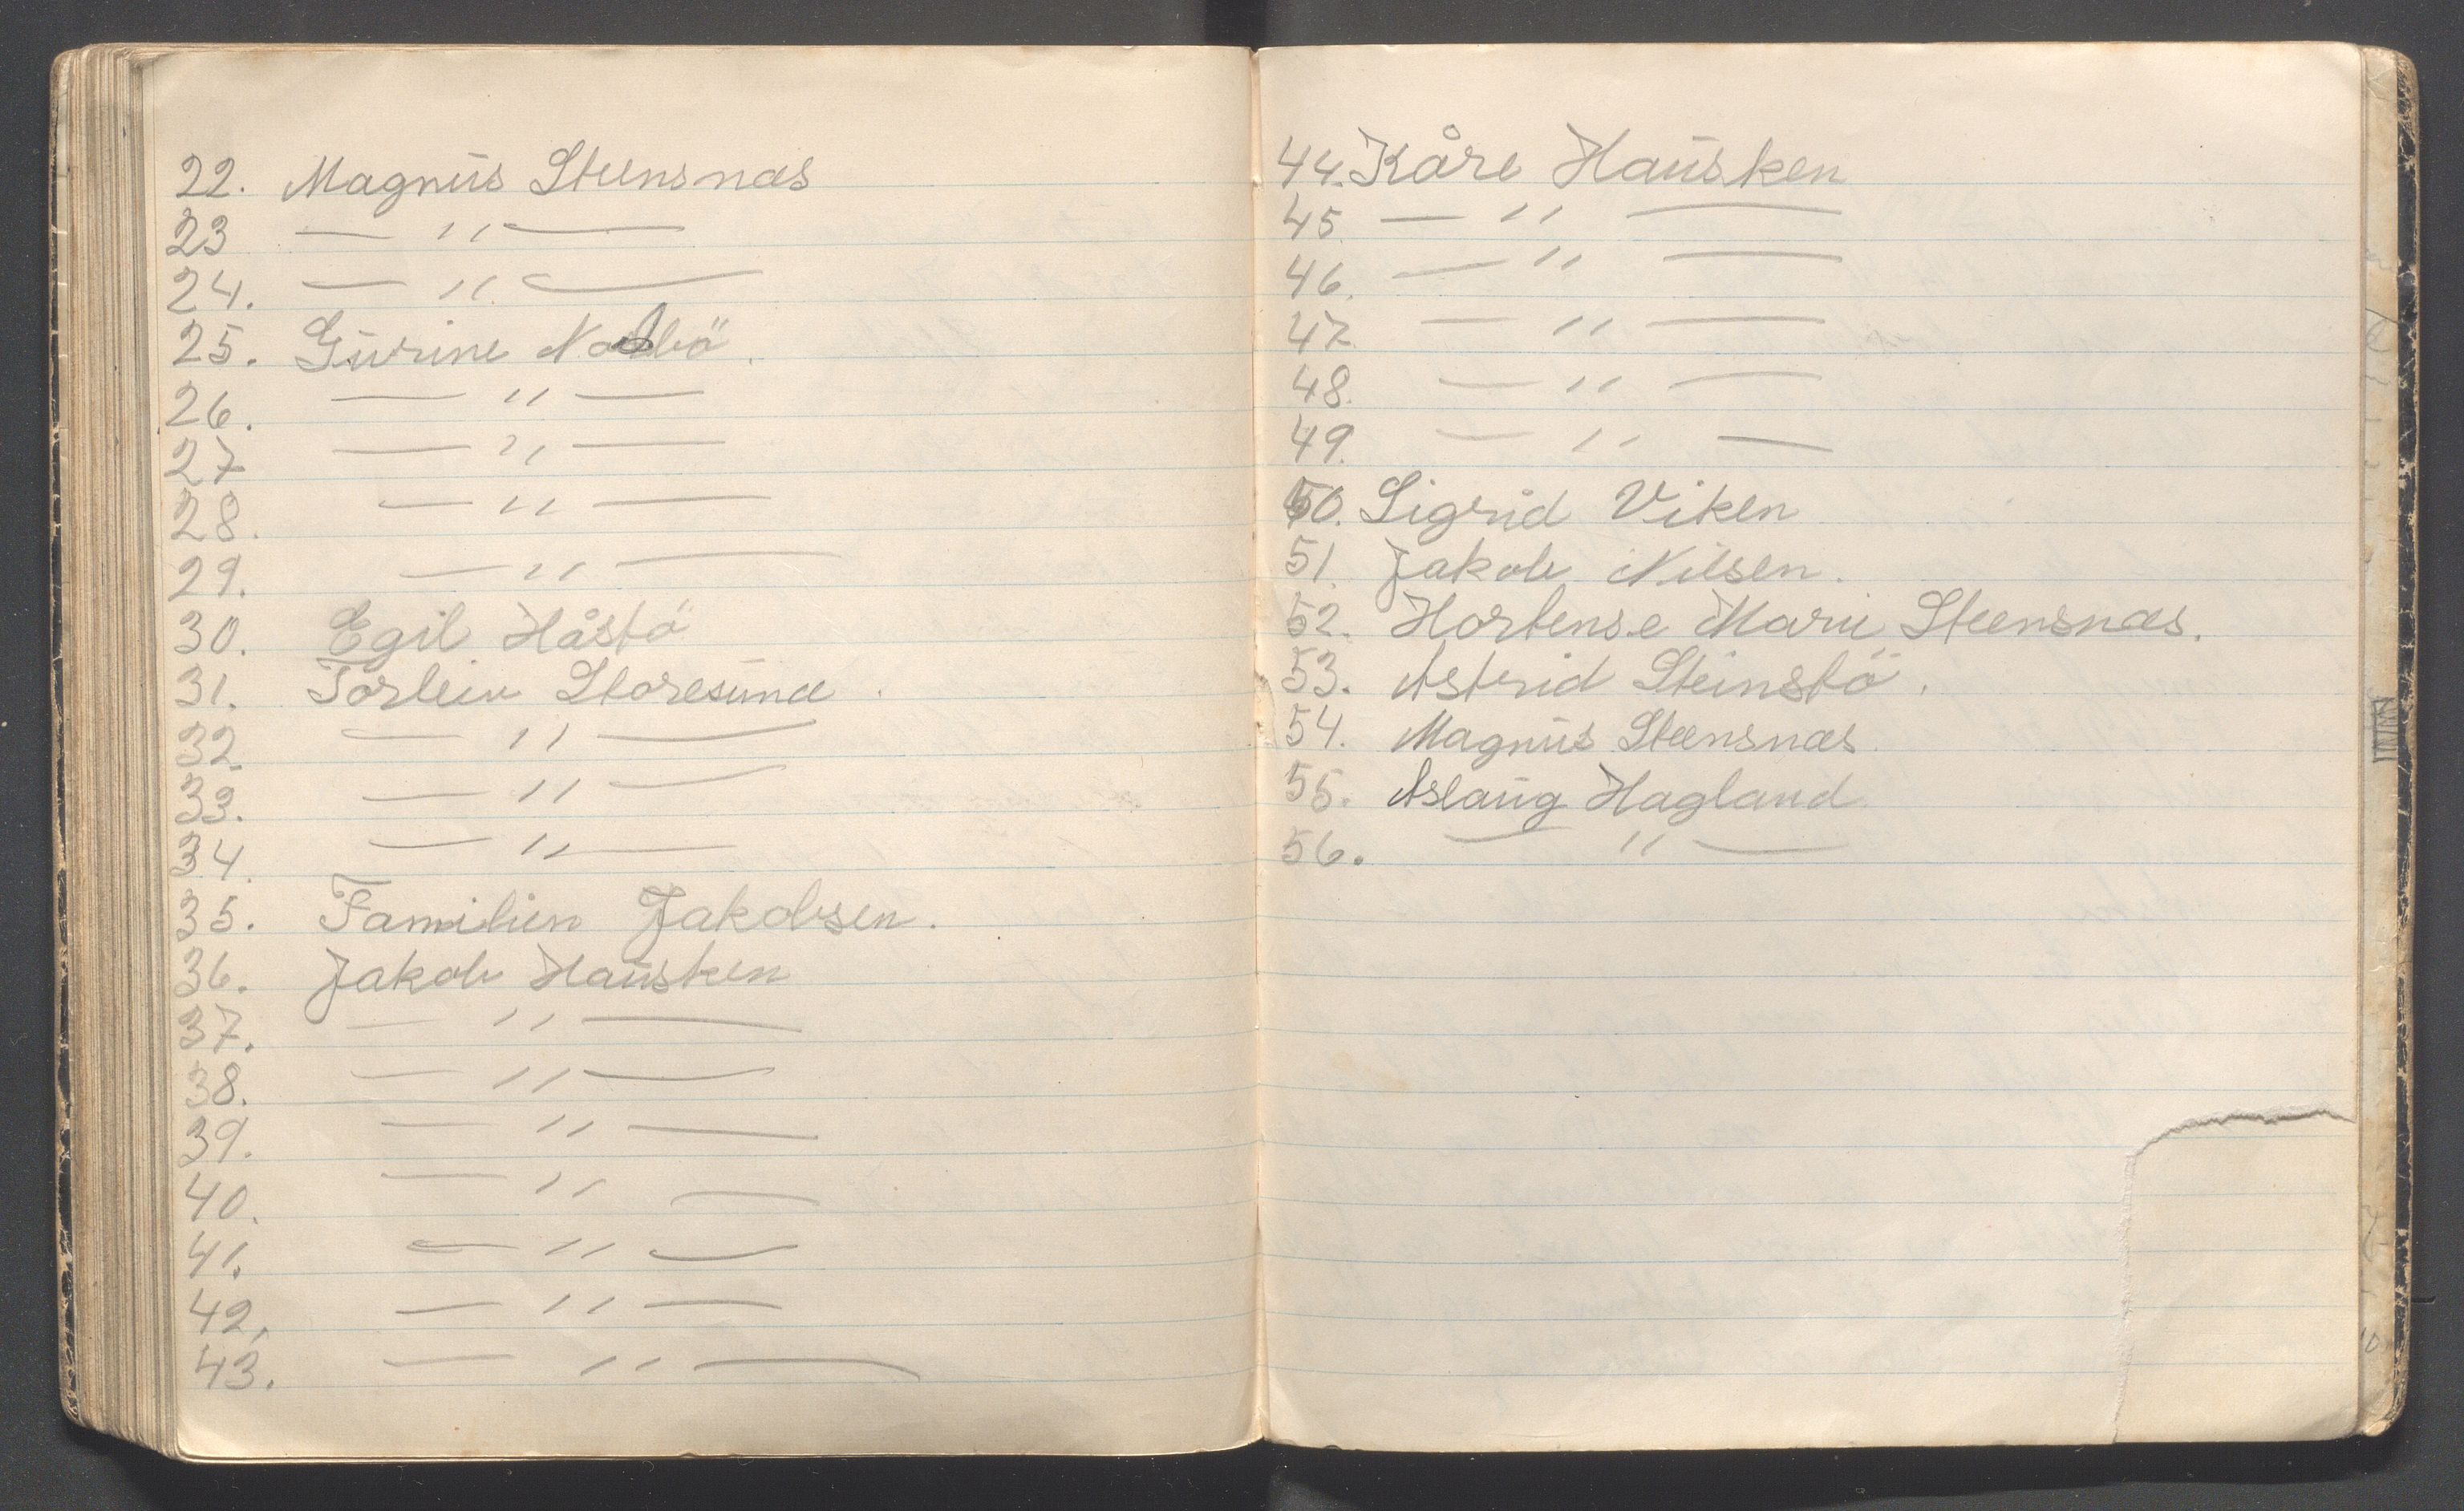 22. Magnus Steensnæs
23 — " —
24. — " —
25. Gurine
26. — " —
27 — " —
28. — " —
29. — " —
30. Egil Håstö
31. Torleiv Storesund.
32. — " —
33. — " —
34. — " —
35. Familien Jakobsen.
36. Jakob Hausken
37. — " —
38. — " —
39. — " —
40. — " —
41. — " —
42. — " —
43. — " —
44. Kåre Hausken
45. — " —
46. — " —
47. — " —
48. — " —
49. — " —
50. Sigrid Viken
51. Jakob Nilsen.
52. Hortense Marie Steensnæs.
53. Astrid Steinstö.
54. Magnus Steensnæs.
55. Aslaug Hagland.
56. — " —